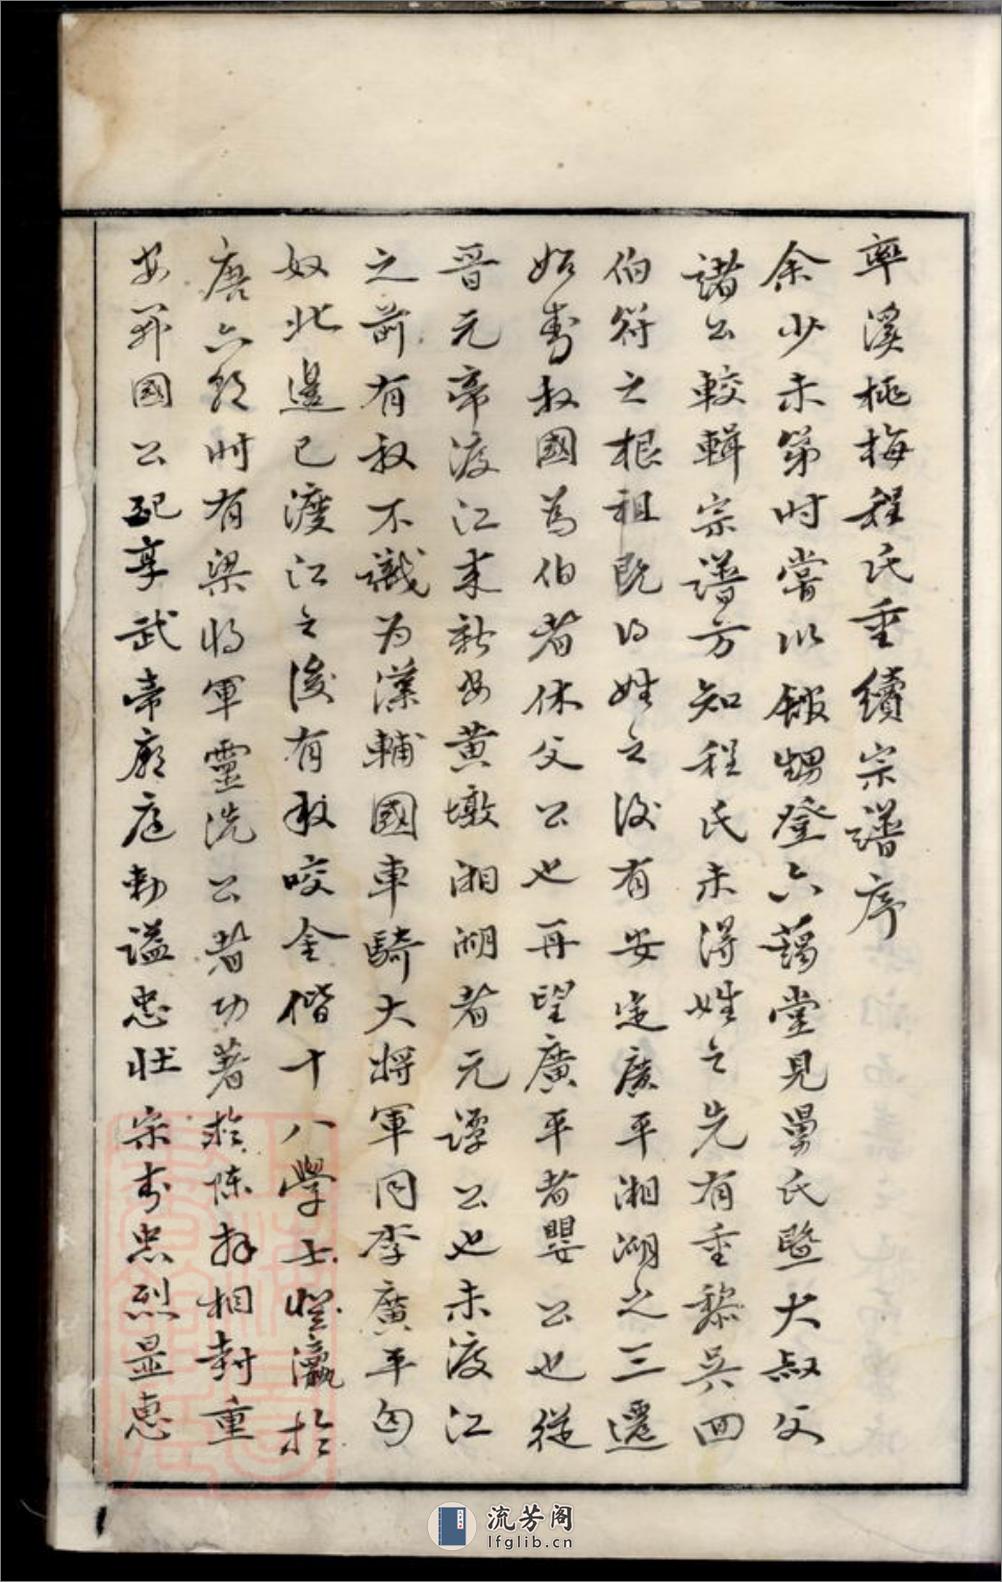 率溪極梅程氏重續宗譜序
余少未第時嘗以館甥登六藹堂見舅氏暨大叔父
諸公較輯宗譜方知程氏未得姓之先有重黎吳回
伯符之根祖既得姓之後有安定廣平湘湖之三遷
始封叔國為伯者休父公也再望廣平者嬰公也從
晉元帝渡江來新安黃墩湘湖者元譚公也未渡江
之前有叔不識为漢輔國車騎大將軍同李廣平匈
奴北邊已渡江之後有叔咬金偕十八學士登瀛於
唐六朝时有梁將軍靈洗公者功著於陳拜相封重
安郡國公配享武帝廟庭勅謚忠壯宋封忠烈显惠
流芳阁
lfglib.cn